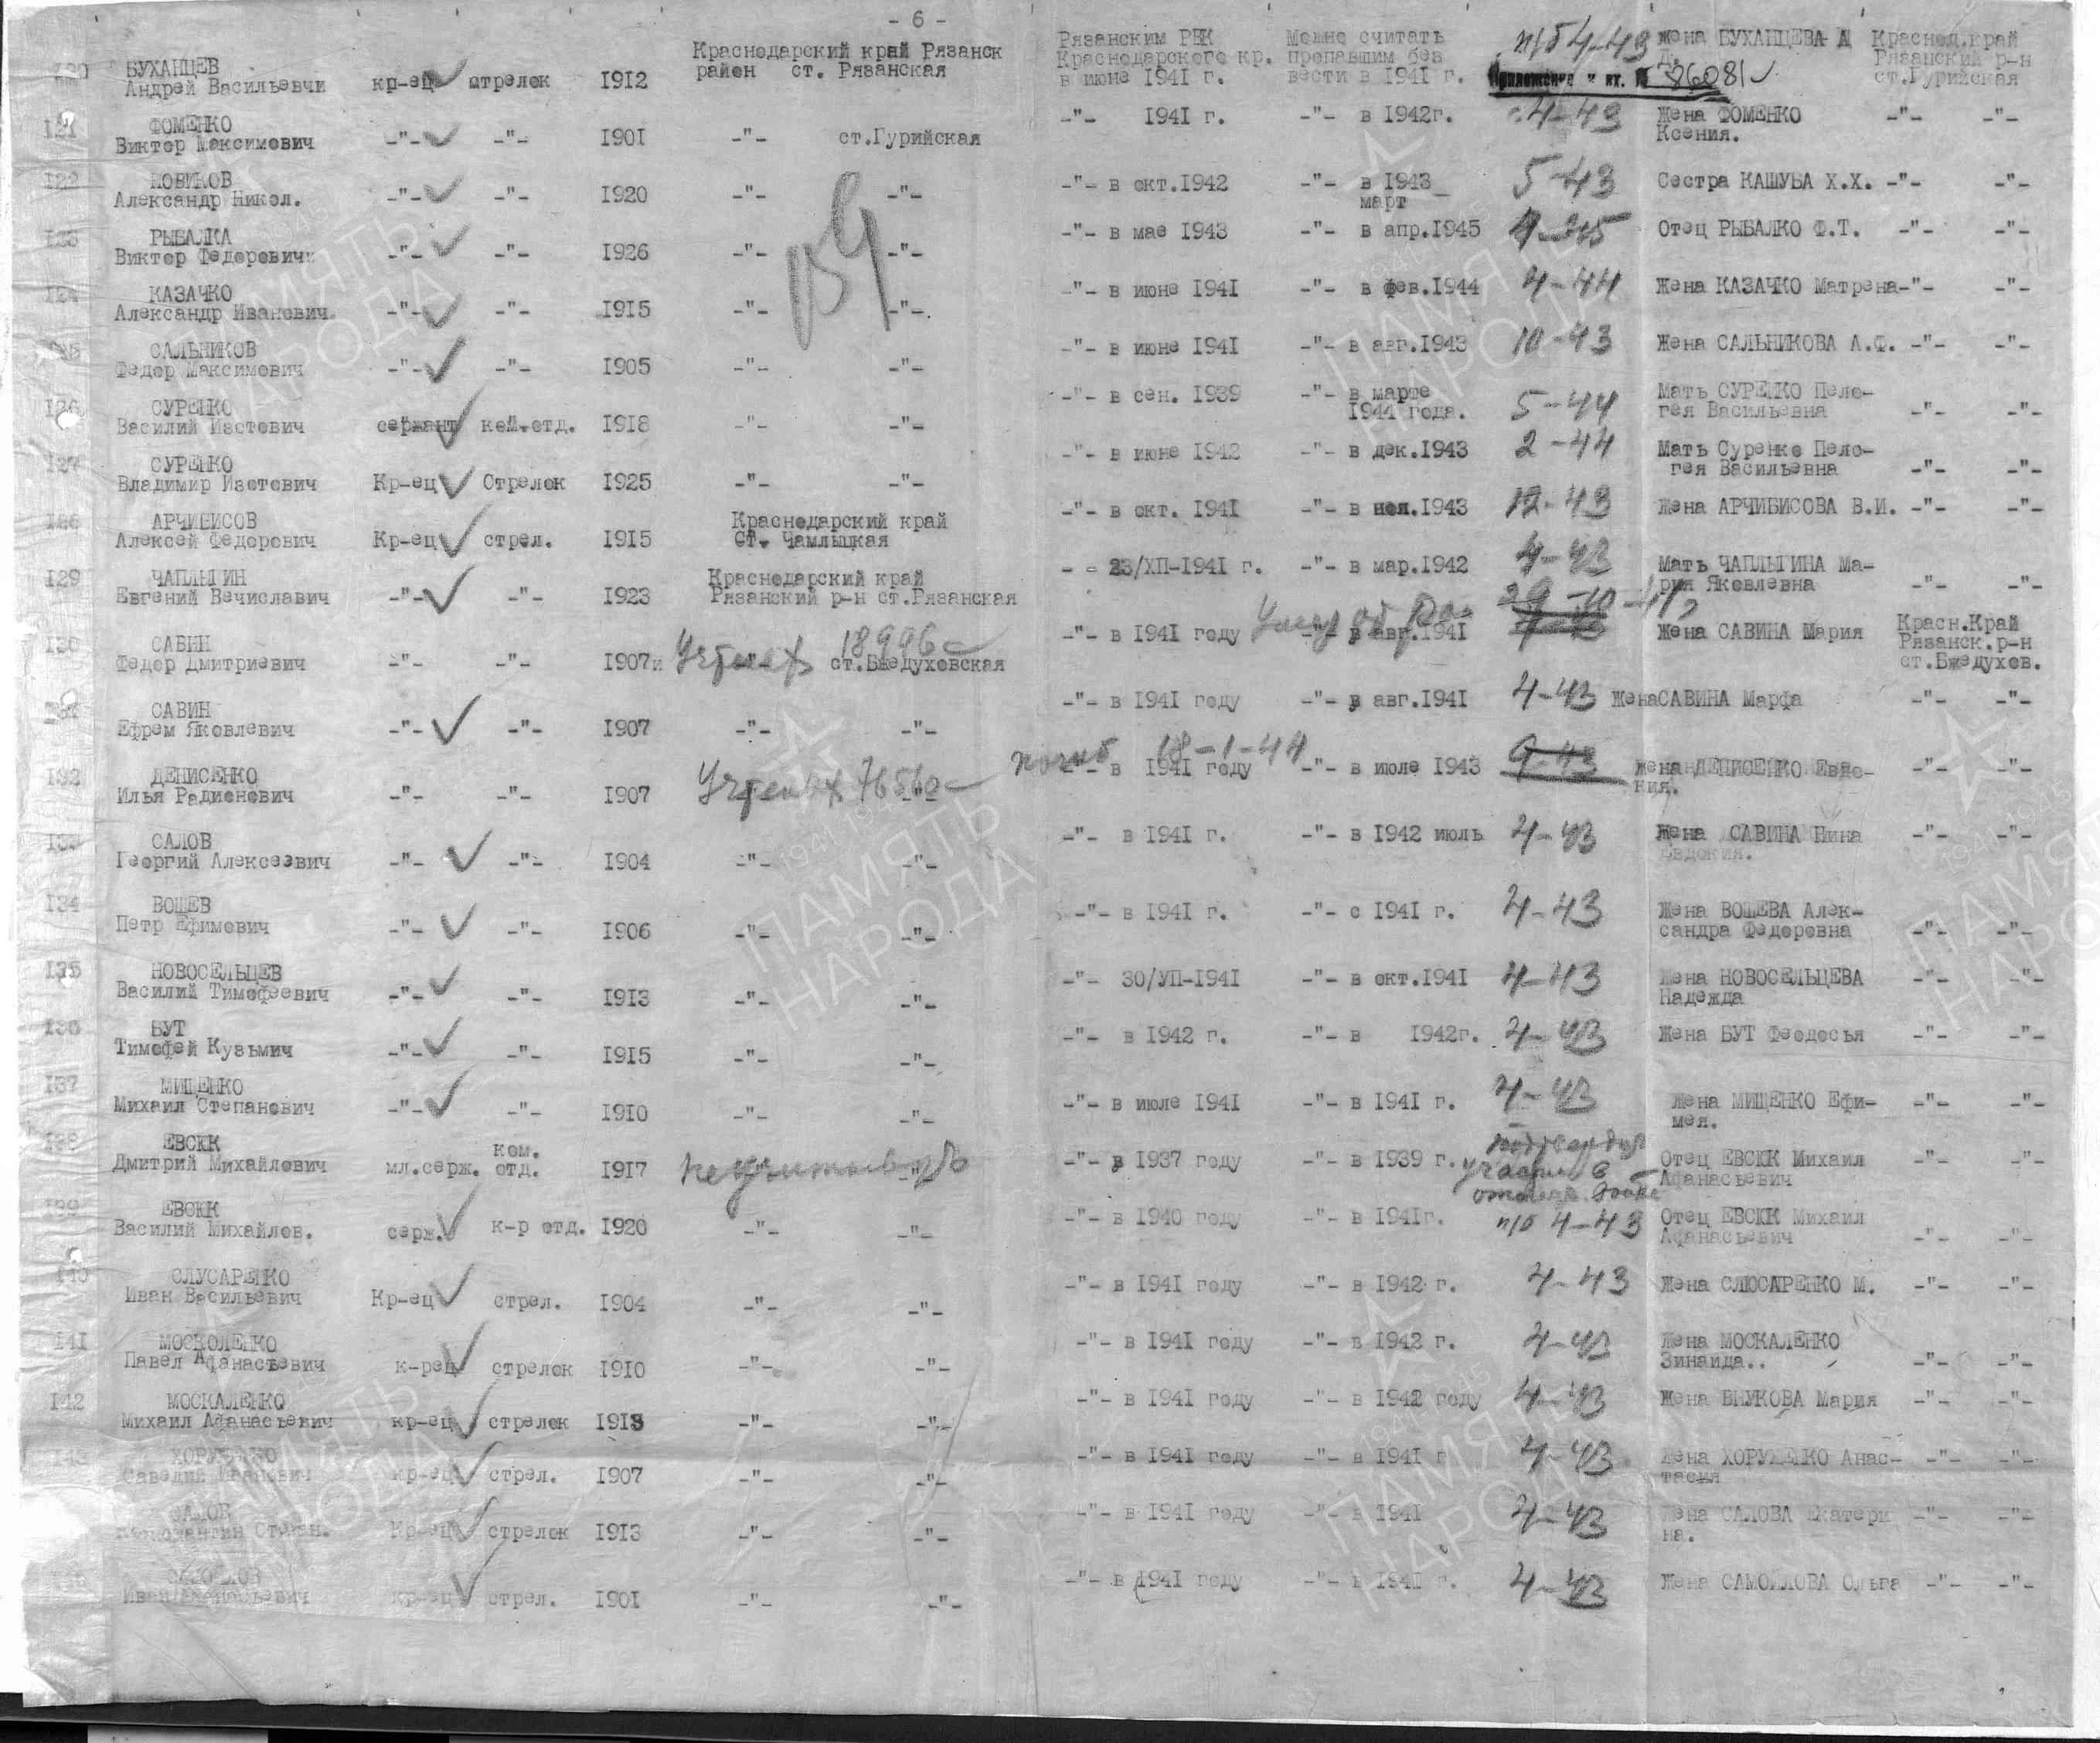 - 6 -
БУХАНЦЕВ
Андрей Васильевчи кр-ец стрелок 1912 Краснодарский край Рязанск район ст. Рязанская Рязанским РВК Краснодарского кр. в июне 1941 г. Можно считать пропавшим без вести в 1941 г. п/б 4-43 жена БУХАНЦЕВА Д Краснод.край Рязанский р-н ст.Гурийская
Приложение к вх. 86081
121 ФОМЕНКО
Виктор Максимович -"- -"- 1901 -"- ст.Гурийская -"- 1941 г. -"- в 1942г. 4-43 Жена ФОМЕНКО Ксения. -"- -"-
122 НОВИКОВ
Александр Никол. -"- -"- 1920 -"- -"- -"- в окт.1942 -"- в 1943 март 5-43 Сестра КАШУБА Х.Х. -"- -"-
123 РЫБАЛКА
Виктор Федорович -"- -"- 1926 -"- -"- -"- в мае 1943 -"- в апр.1945 Отец РЫБАЛКО Ф.Т. -"- -"-
124 КАЗАЧКО
Александр Иванович. -"- -"- 1915 -"- -"-. -"- в июне 1941 -"- в фев.1944 4-44 Жена КАЗАЧКО Матрена -"- -"-
125 САЛЬНИКОВ
Федор Максимович -"- -"- 1905 -"- -"- -"- в июне 1941 -"- в авг.1943 10-43 Жена САЛЬНИКОВА А.Ф. -"- -"-
126 СУРЕНКО
Василий Изотович сержант ком.отд. 1918 -"- -"- -"- в сен. 1939 -"- в марте 1944 года. 5-44 Мать СУРЕНКО Пелогея Васильевна -"- -"-
127 СУРЕНКО
Владимир Изотович Кр-ец Стрелок 1925 -"- -"- -"- в июне 1942 -"- в дек.1943 2-44 Мать Суренко Пелогея Васильевна -"- -"-
128 АРЧИБИСОВ
Алексей Федорович Кр-ец стрел. 1915 Краснодарский край Ст. Чамлыцкая -"- в окт. 1941 -"- в ноя.1943 12-43 Жена АРЧИБИСОВА В.И. -"- -"-
129 ЧАПЛЫГИН
Евгений Вечиславич -"- -"- 1923 Краснодарский край Рязанский р-н ст.Рязанская - - 23/ХП-1941 г. -"- в мар.1942 4-43 Мать ЧАПЛЫГИНА Мария Яковлевна -"- -"-
130 САВИН
Федор Дмитриевич -"- -"- 1907 Учтен 18996с -"- ст.Бжедуховская -"- в 1941 году -"- в авг.1941 29-10-41 Жена САВИНА Мария Красн.Край Рязанск.р-н ст.Бжедухов.
131 САВИН
Ефрем Яковлевич -"- -"- 1907 -"- -"- -"- в 1941 году -"- в авг.1941 4-43 Жена САВИНА Марфа -"- -"-
132 ДЕНИСЕНКО
Илья Радионович -"- -"- 1907 Учтен 76560с -"- погиб 18-1-44 -"- в 1941 году -"- в июле 1943 9-43 жена ДЕНИСЕНКО Евдокия. -"- -"-
133 САЛОВ
Георгий Алексеевич -"- -"- 1904 -"- -"- -"- в 1941 г. -"- в 1942 июль 4-43 Жена САВИНА Нина Евдокия. -"- -"-
134 ВОШЕВ
Петр Ефимович -"- -"- 1906 -"- -"- -"- в 1941 г. -"- с 1941 г. 4-43 Жена ВОШЕВА Александра Федоровна -"- -"-
135 НОВОСЕЛЬЦЕВ
Василий Тимофеевич -"- -"- 1913 -"- -"- -"- 30/УП-1941 -"- в окт.1941 4-43 Жена НОВОСЕЛЬЦЕВА Надежда -"- -"-
136 БУТ
Тимофей Кузьмич -"- -"- 1915 -"- -"- -"- в 1942 г. -"- в 1942г. 4-43 Жена БУТ Феодосья -"- -"-
137 МИЩЕНКО
Михаил Степанович -"- -"- 1910 -"- -"- -"- в июле 1941 -"- в 1941 г. 4-43 Жена МИЩЕНКО Ефимея. -"- -"-
138 ЕВСЮК
Дмитрий Михайлович мл.серж. ком. отд. 1917 не учитывать -"- в 1937 году -"- в 1939 г. Отец ЕВСЮК Михаил Афанасьевич -"- -"-
139 ЕВСЮК
Василий Михайлов. серж. к-р отд. 1920 -"- -"- -"- в 1940 году -"- в 1941г. п/б 4-43 Отец ЕВСЮК Михаил Афанасьевич -"- -"-
140 СЛУСАРЕНКО
Иван Васильевич Кр-ец стрел. 1904 -"- -"- -"- в 1941 году -"- в 1942 г. 4-43 Жена СЛЮСАРЕНКО М. -"- -"-
141 МОСКОЛЕНКО
Павел Афанасьевич к-рец стрелок 1910 -"- -"- -"- в 1941 году -"- в 1942 г. 4-43 Жена МОСКАЛЕНКО Зинаида.. -"- -"-
142 МОСКАЛЕНКО
Михаил Афанасьевич кр-ец стрелок 1913 -"- -"- -"- в 1941 году -"- в 1942 году 4-43 Жена ВНУКОВА Мария -"- -"-
143 ХОРУЖЕНКО
Иванович кр-ец стрел. 1907 -"- -"- -"- в 1941 году -"- в 1941 г 4-43 Жена ХОРУЖЕНКО Анастасия -"- -"-
САЛОВ
Кр-ец стрелок 1913 -"- -"- -"- в 1941 году -"- в 1941 4-43 Жена САЛОВА Екатерина. -"- -"-
Иван Афанасьевич кр-ец стрел. 1901 -"- -"- -"- в 1941 году -"- в 1941 г. 4-43 Жена САМОЙЛОВА Ольга -"- -"-
ПАМЯТЬ
НАРОДА
1941-1945